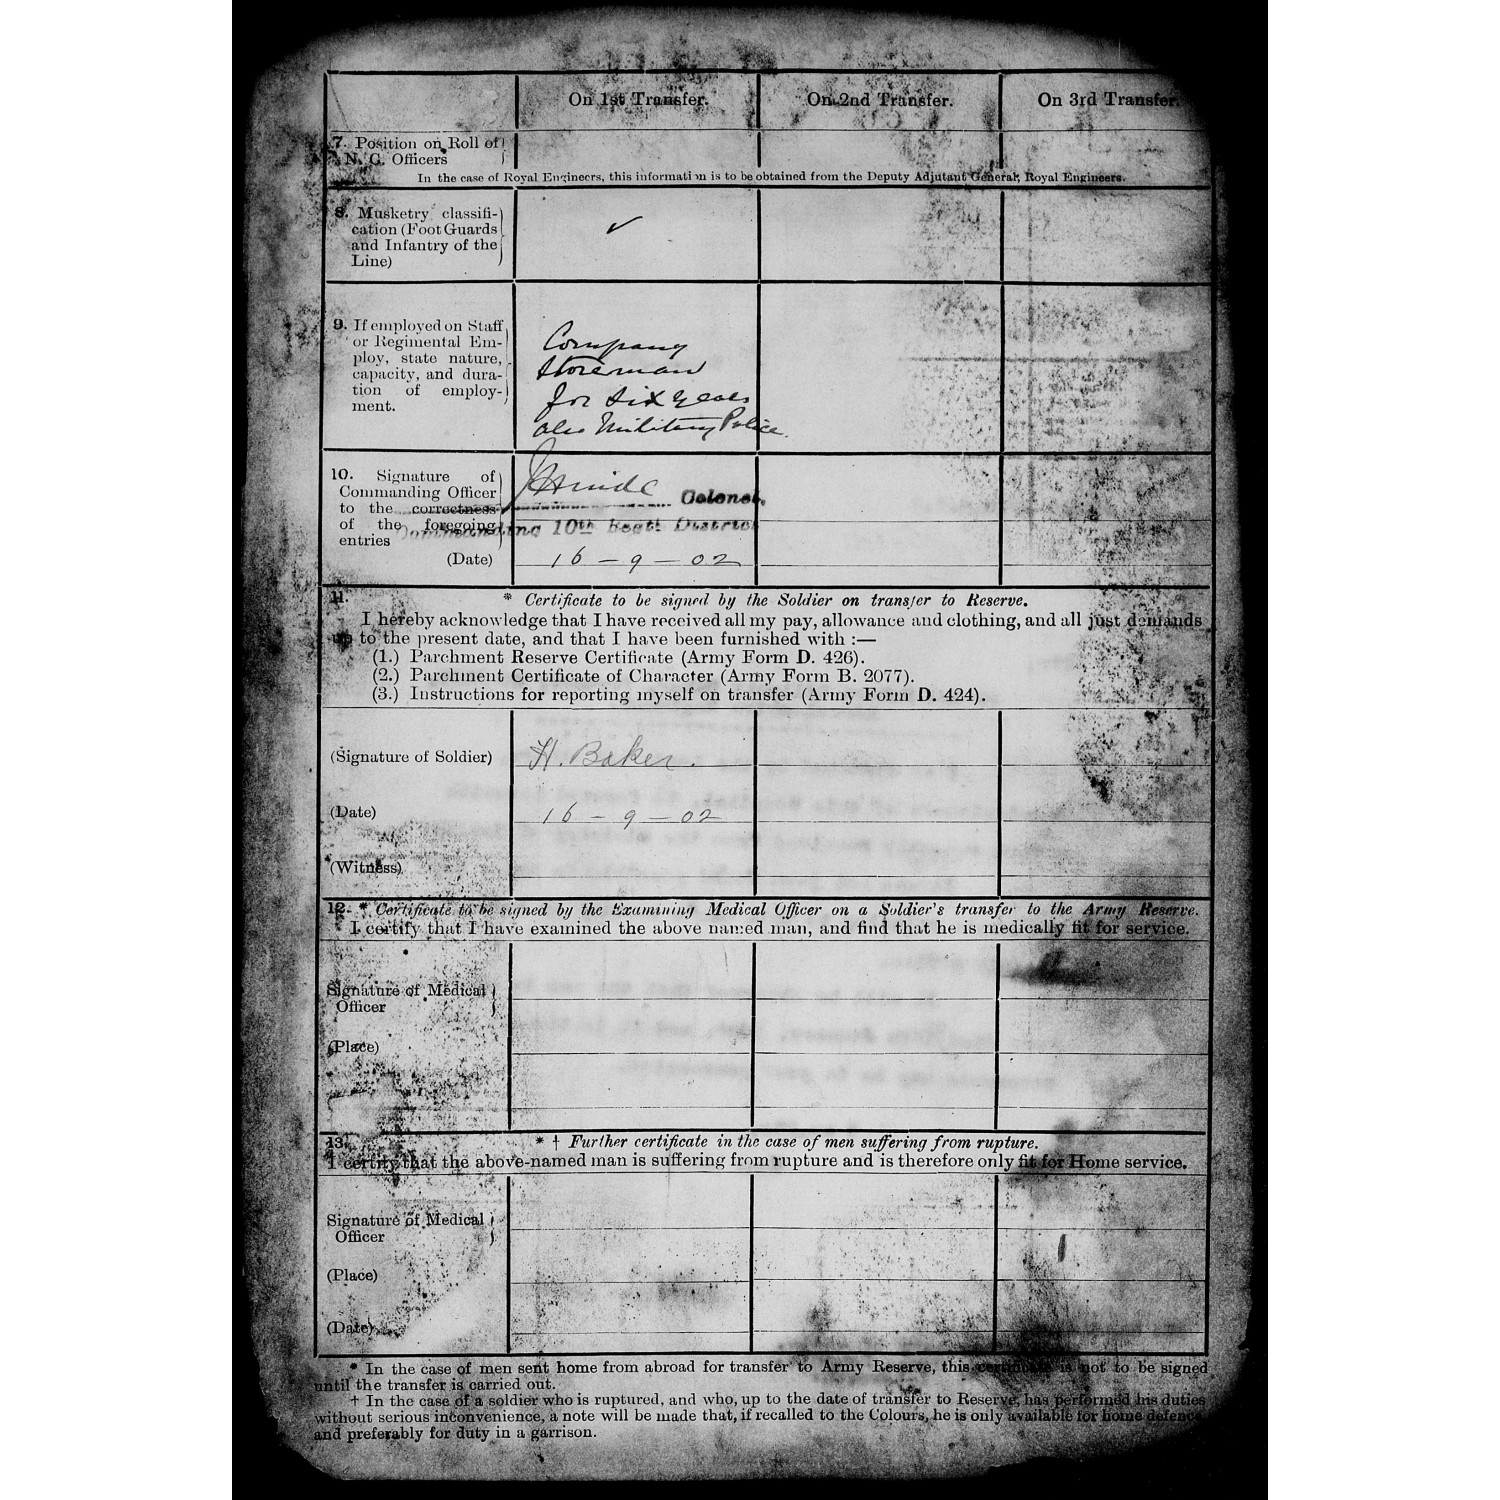 On 1st Transfer. On 2nd Transfer. On 3rd Transfer.
7. Position on Roll of
N. C. Officers
In the case of Royal Engineers, this information is to be obtained from the Deputy Adjutant General, Royal Engineers.
8. Musketry classifi-
cation (Foot Guards
and Infantry of the
Line)
9. If employed on Staff
or Regimental Em-
ploy, state nature,
capacity, and dura-
tion of employ-
ment.
Company
Storeman
for six years
also Military Police.
10. Signature of
Commanding Officer
to the correctness
of the foregoing
entries
Colonel,
Commanding 10th Regtl District
(Date) 16 - 9 - 02
11. * Certificate to be signed by the Soldier on transfer to Reserve.
I hereby acknowledge that I have received all my pay, allowance and clothing, and all just demands
up to the present date, and that I have been furnished with :—
(1.) Parchment Reserve Certificate (Army Form D. 426).
(2.) Parchment Certificate of Character (Army Form B. 2077).
(3.) Instructions for reporting myself on transfer (Army Form D. 424).
(Signature of Soldier) H. Baker.
(Date) 16 - 9 - 02
(Witness)
12. * Certificate to be signed by the Examining Medical Officer on a Soldier's transfer to the Army Reserve.
I certify that I have examined the above named man, and find that he is medically fit for service.
Signature of Medical
Officer
(Place)
13. * † Further certificate in the case of men suffering from rupture.
I certify that the above-named man is suffering from rupture and is therefore only fit for Home service.
Signature of Medical
Officer
(Place)
(Date)
* In the case of men sent home from abroad for transfer to Army Reserve, this certificate is not to be signed
until the transfer is carried out.
† In the case of a soldier who is ruptured, and who, up to the date of transfer to Reserve, has performed his duties
without serious inconvenience, a note will be made that, if recalled to the Colours, he is only available for home defence
and preferably for duty in a garrison.